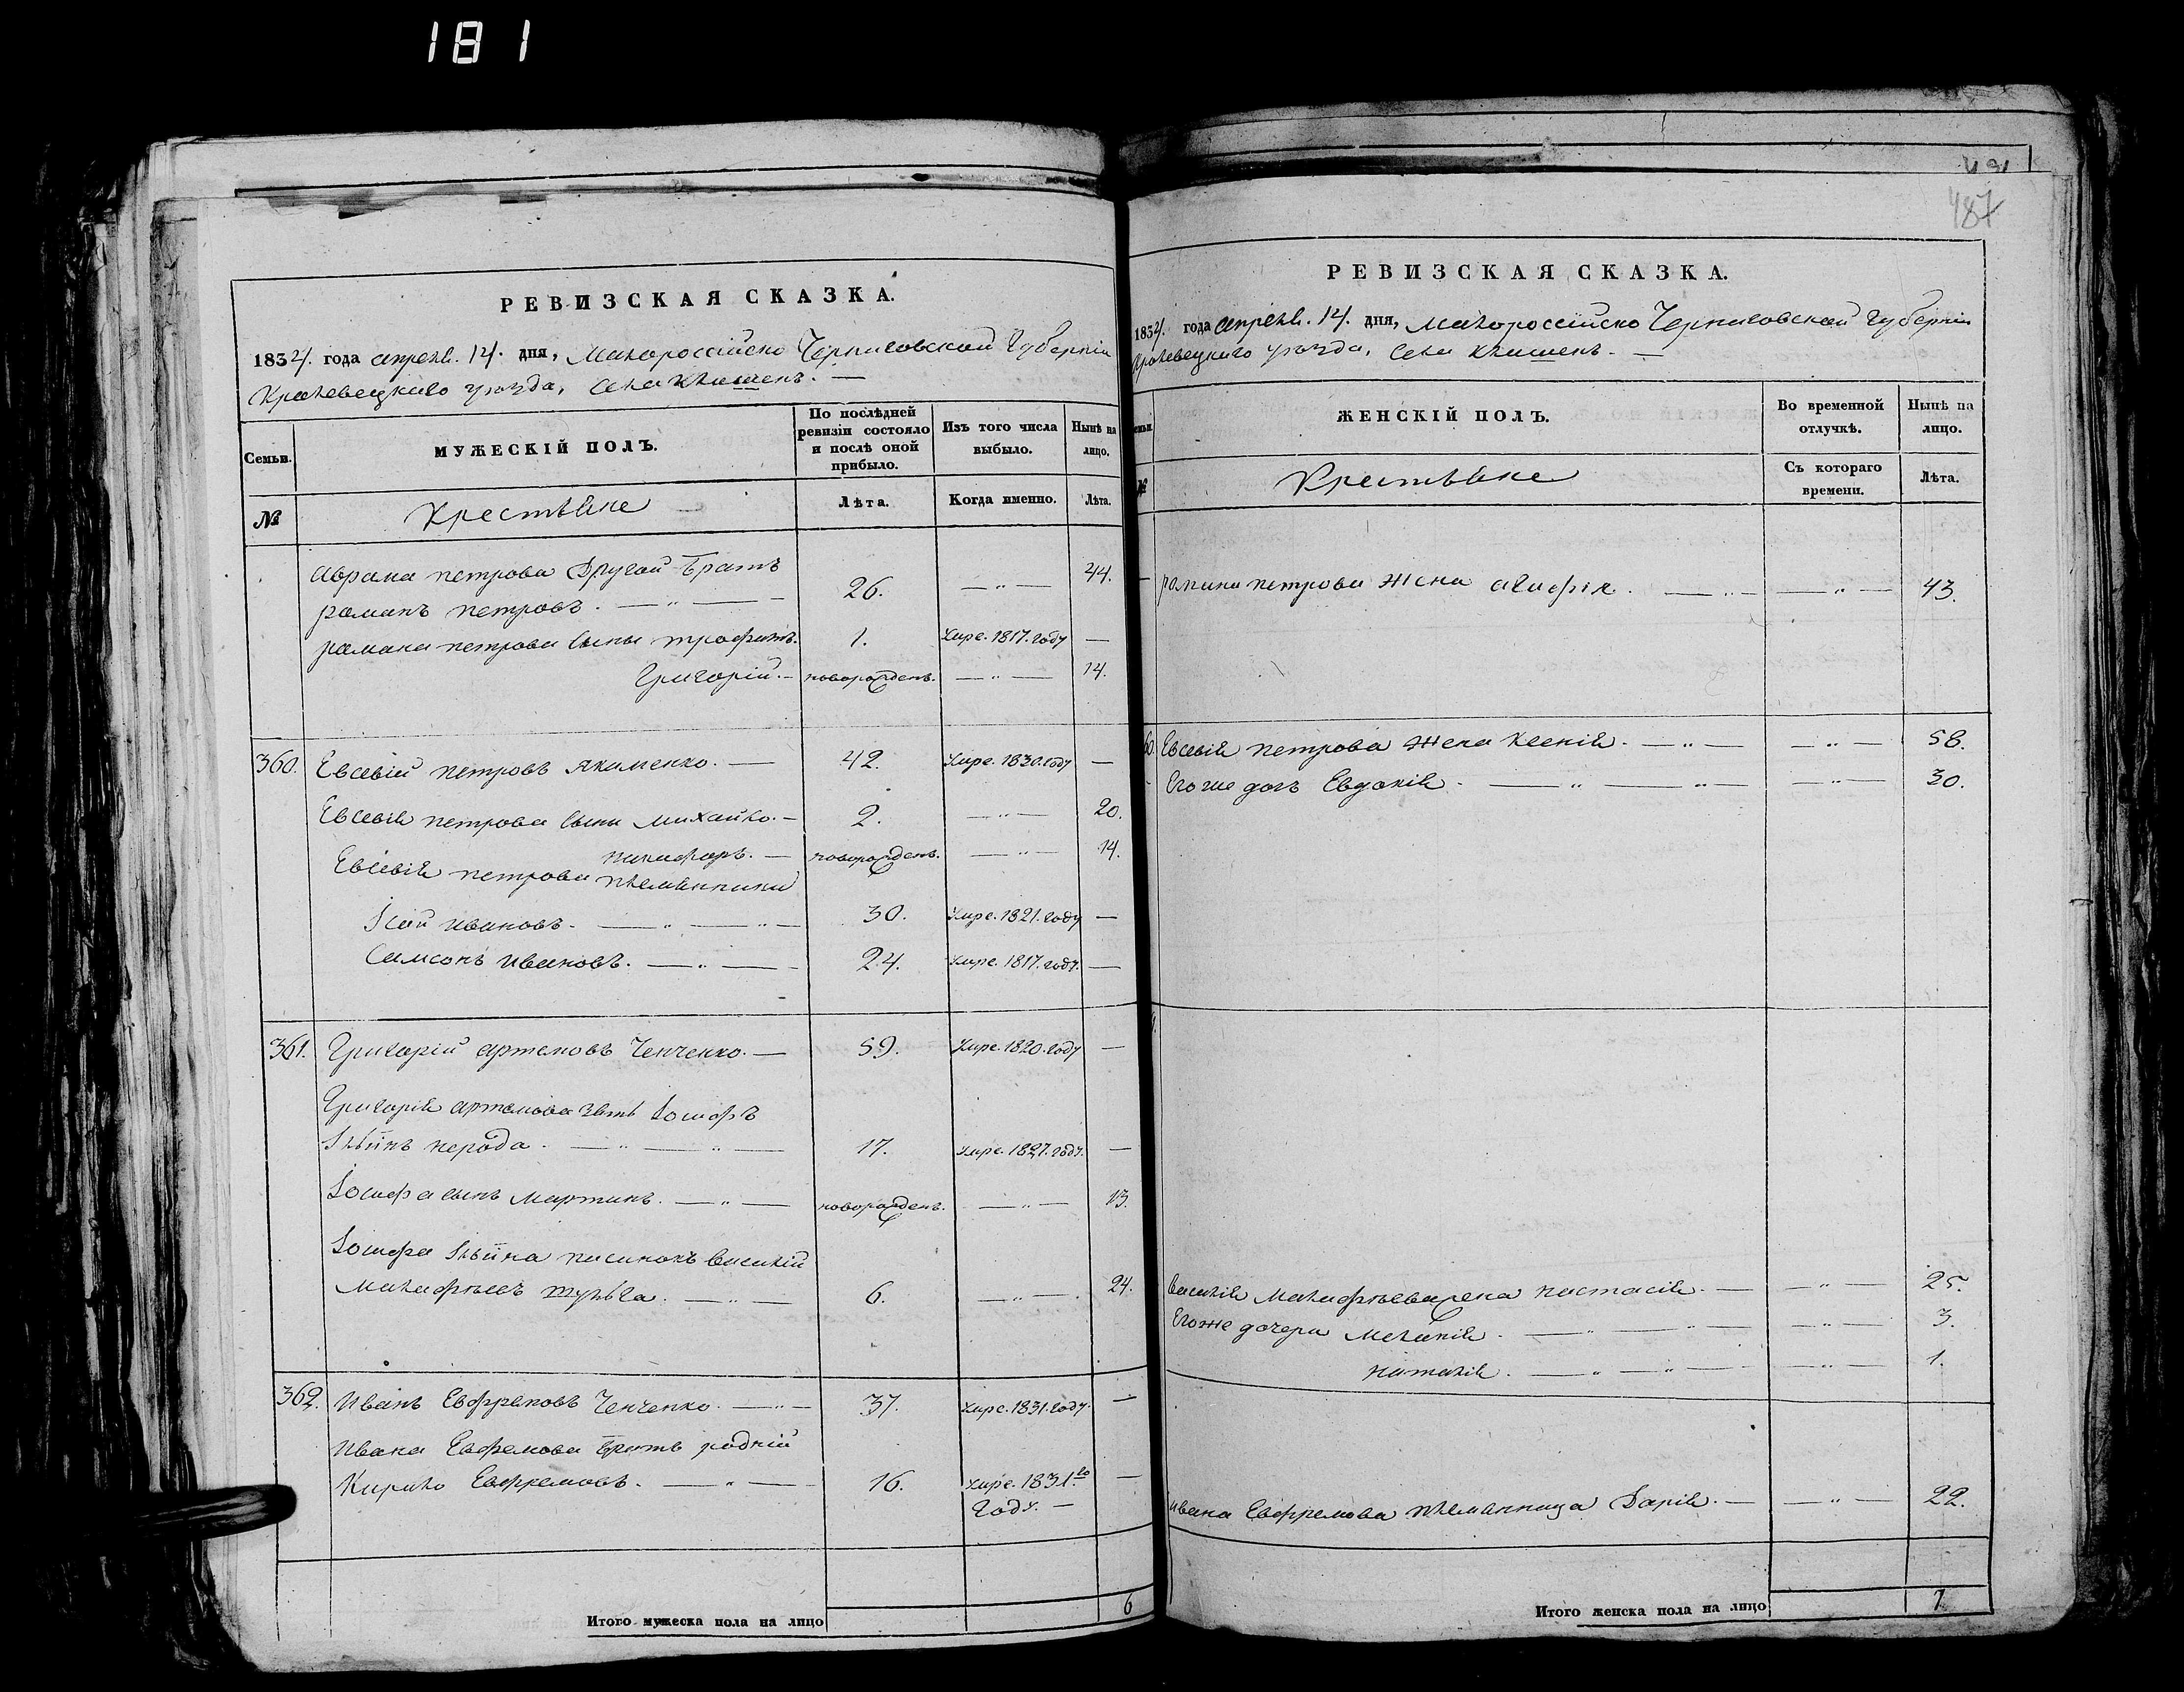 181
487
РЕВИЗСКАЯ СКАЗКА.
1834. года апреля. 14. дня, Малороссійско Черниговской Губерніи
Кролевецкаго уезда, Села Клишекъ. —
Семьи.
МУЖЕСКІЙ ПОЛЪ.
По послѣдней ревизіи состояло и послѣ оной прибыло.
Изъ того числа выбыло.
Нынѣ на лицо.
№
Крестьяне
Лѣта.
Когда именно.
Лѣта.
Аврама петрова Другой Братъ
романъ петровъ. — 26. — 44.
романа петрова сыны трофимъ. 1. Умре. 1817. году —
Григорій. — новорожденъ. — 14.
360. Евсевій петровъ якименко. — 42. Умре. 1830. году —
Евсевія петрова сыны михайло. — 2. — 20.
никифоръ. — новорожденъ. — 14.
Евсевія петрова племянники
Ісай ивановъ. — 30. Умре. 1821. году —
Самсонъ ивановъ. — 24. Умре. 1817. году. —
361. Григорій артемовъ Ченченко. — 59. Умре. 1820. году —
Григорія артемова зять Іосифъ
Ильинъ нерода. — 17. Умре. 1827. году. —
Іосифа сынъ мартинъ. — новорожденъ. — 13.
Іосифа Ильина пасинокъ василій
малафѣевъ — 6. — 24.
362. Иванъ Евфремовъ Ченченко. — 37. Умре. 1831. году. —
Ивана Евфремова братъ родній
Кирило Евфремовъ. — 16. Умре. 1831.го —
Году. —
Итого мужеска пола на лицо 6
РЕВИЗСКАЯ СКАЗКА.
1834. года апреля. 14. дня, Малороссійско Черниговской Губерніи
Кролевецкаго уезда, Села Клишекъ. —
ЖЕНСКІЙ ПОЛЪ.
Во временной отлучкѣ.
Нынѣ на лицо.
№
Крестьяне
Съ котораго времени.
Лѣта.
романа петрова жена агафія. — 43.
60. Евсевія петрова жена ксенія. — 58.
Егоже дочь Евдокія. — 30.
василія малафѣева жена настасія. — 25.
Егоже дочери меланія. — 3.
наталія. — 1.
ивана Евфремова племянница Дарія. — 22.
Итого женска пола на лицо 7